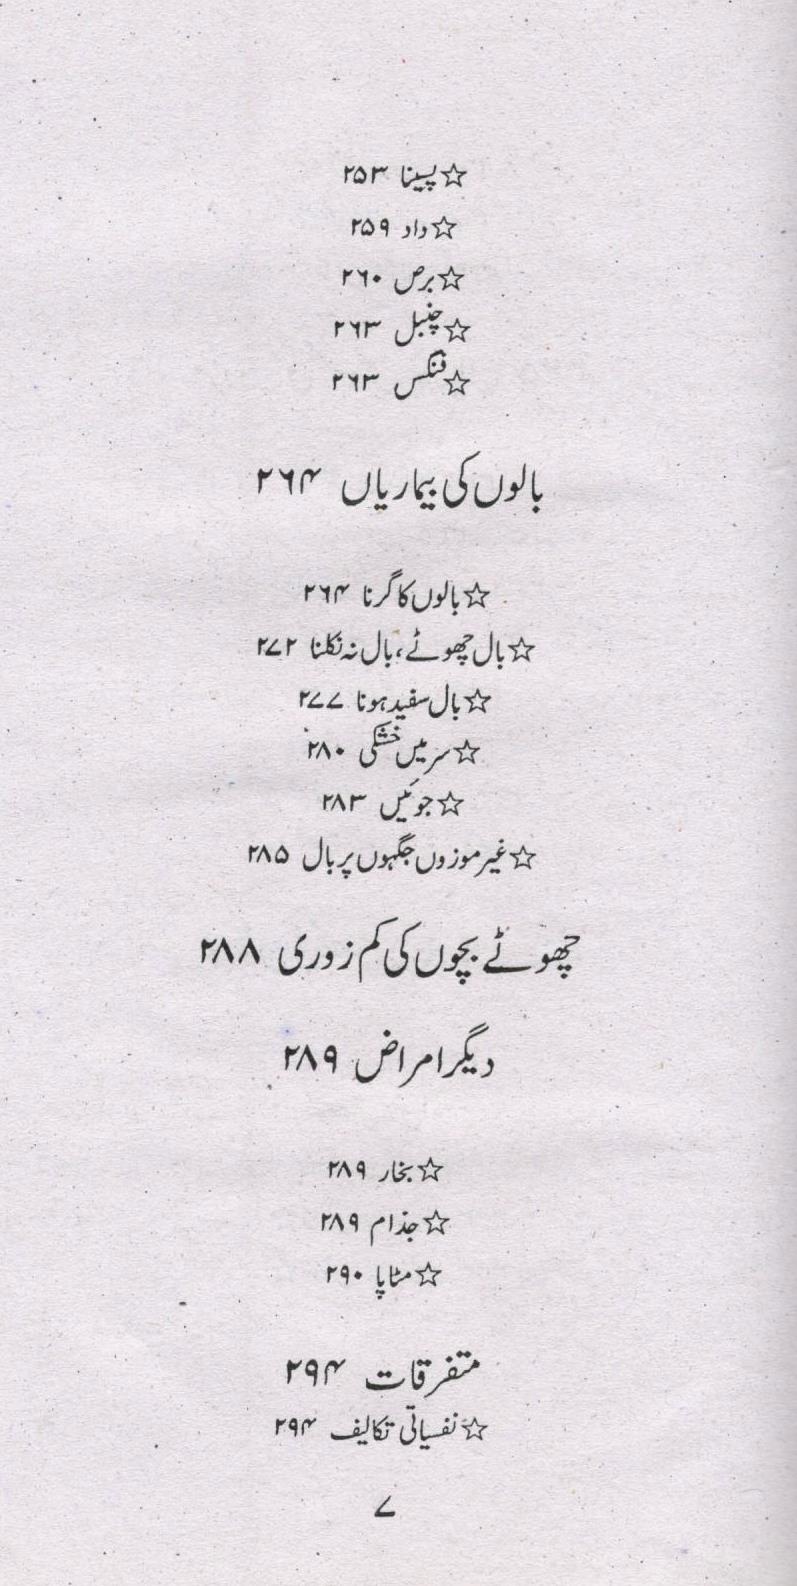 ☆ پسینا ۲۵۳
☆ داد ۲۵۹
☆ برص ۲۶۰
☆ چنبل ۲۶۳
☆ فنگس ۲۶۳
بالوں کی بیماریاں ۲۶۴
☆ بالوں کا گرنا ۲۶۴
☆ بال چھوٹے، بال نہ نکلنا ۲۷۲
☆ بال سفید ہونا ۲۷۷
☆ سر میں خشکی ۲۸۰
☆ جوئیں ۲۸۳
☆ غیر موزوں جگہوں پر بال ۲۸۵
چھوٹے بچوں کی کم زوری ۲۸۸
دیگر امراض ۲۸۹
☆ بخار ۲۸۹
☆ جذام ۲۸۹
☆ مٹاپا ۲۹۰
متفرقات ۲۹۴
☆ نفسیاتی تکالیف ۲۹۴
۷